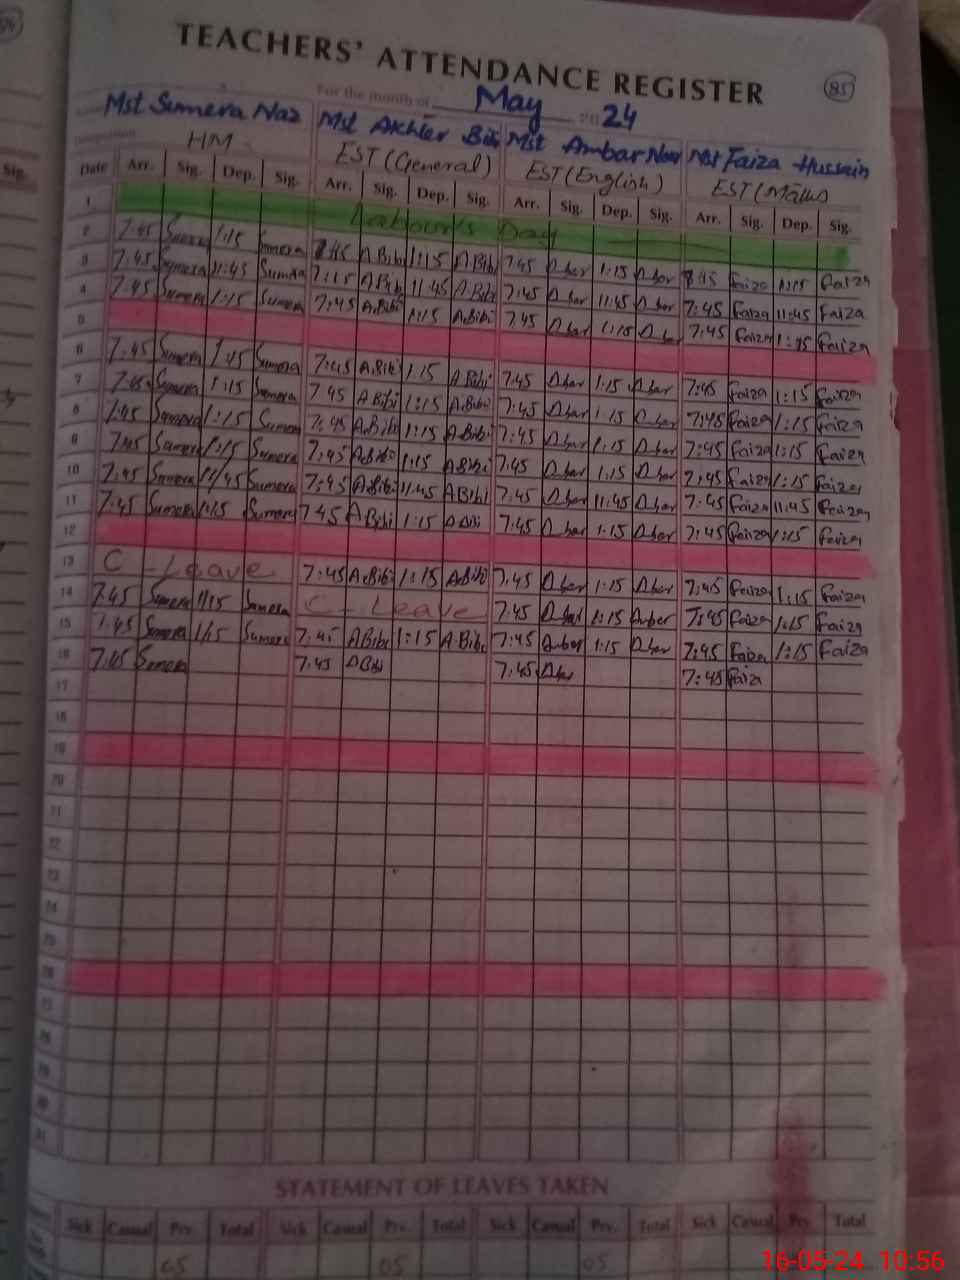 TEACHERS' ATTENDANCE REGISTER
85
For the month of May 2024
Mst Sumera Naz Mst Akhter Bibi Mst Ambar Noor Mst Faiza Hussain
HM EST (General) EST (English) EST (Maths)
Date Arr. Sig. Dep. Sig. Arr. Sig. Dep. Sig. Arr. Sig. Dep. Sig. Arr. Sig. Dep. Sig.
1 Labour's Day
2 7:45 Sumera 1:15 Sumera A.Bibi 1:15 A.Bibi 7:45 Amber 1:15 Amber Faiza 1:15 Faiza
3 7:45 Sumera 11:45 Sumera A.Bibi 11:45 A.Bibi 7:45 Amber 11:45 Amber 7:45 Faiza 11:45 Faiza
4 7:45 Sumera 1:15 Sumera 7:45 A.Bibi 1:15 A.Bibi 7:45 Amber 1:15 Amber 7:45 Faiza Faiza
5
6 7:45 Sumera Sumera 7:45 A.Bibi 1:15 A.Bibi 7:45 Amber 1:15 Amber 7:45 Faiza 1:15 Faiza
7 7:45 Sumera 1:15 Sumera 7:45 A.Bibi 1:15 A.Bibi 7:45 Amber 1:15 Amber 7:45 Faiza 1:15 Faiza
8 7:45 Sumera 1:15 Sumera 7:45 A.Bibi 1:15 A.Bibi 7:45 Amber 1:15 Amber 7:45 Faiza 1:15 Faiza
9 7:45 Sumera 1:15 Sumera 7:45 A.Bibi 1:15 A.Bibi 7:45 Amber 1:15 Amber 7:45 Faiza 1:15 Faiza
10 7:45 Sumera 11:45 Sumera 7:45 A.Bibi 11:45 A.Bibi 7:45 Amber 11:45 Amber 7:45 Faiza 11:45 Faiza
11 7:45 Sumera 1:15 Sumera 7:45 A.Bibi 1:15 A.Bibi 7:45 Amber 1:15 Amber 7:45 Faiza 1:15 Faiza
12
13 C-Leave 7:45 A.Bibi 1:15 A.Bibi 7:45 Amber 1:15 Amber 7:45 Faiza 1:15 Faiza
14 7:45 Sumera 1:15 Sumera C-Leave 7:45 Amber 1:15 Amber 7:45 Faiza 1:15 Faiza
15 7:45 Sumera 1:15 Sumera 7:45 A.Bibi 1:15 A.Bibi 7:45 Amber 1:15 Amber 7:45 Faiza 1:15 Faiza
16 7:45 Sumera 7:45 A.Bibi 7:45 Amber 7:45 Faiza
17
18
19
20
21
22
23
24
25
26
27
28
29
30
31
STATEMENT OF LEAVES TAKEN
Sick Casual Prv. Total Sick Casual Prv. Total Sick Casual Prv. Total Sick Casual Prv. Total
05 05 05
16-05-24 10:56